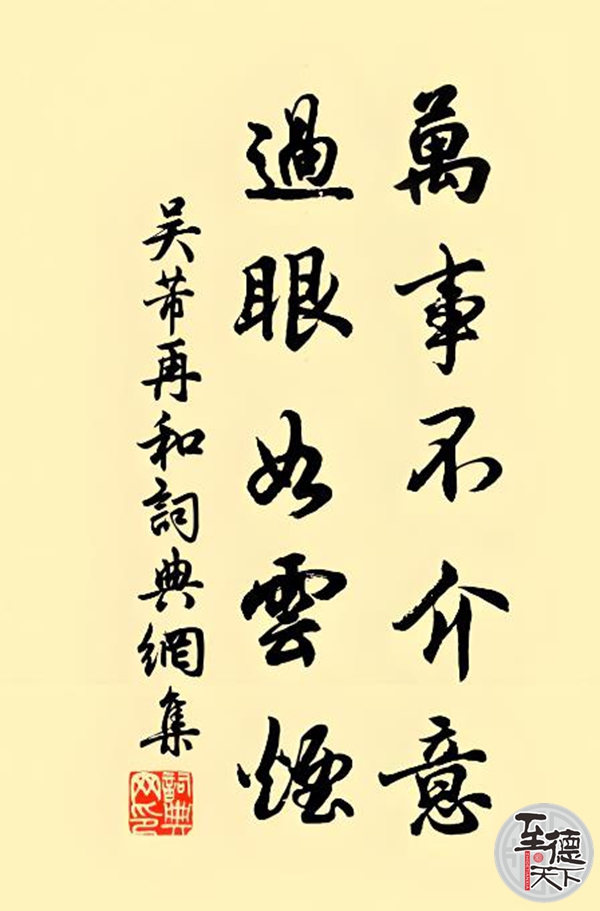 萬事不介意
過眼如雲煙
吴芾再和詞典網集
詞典網印
至德天下